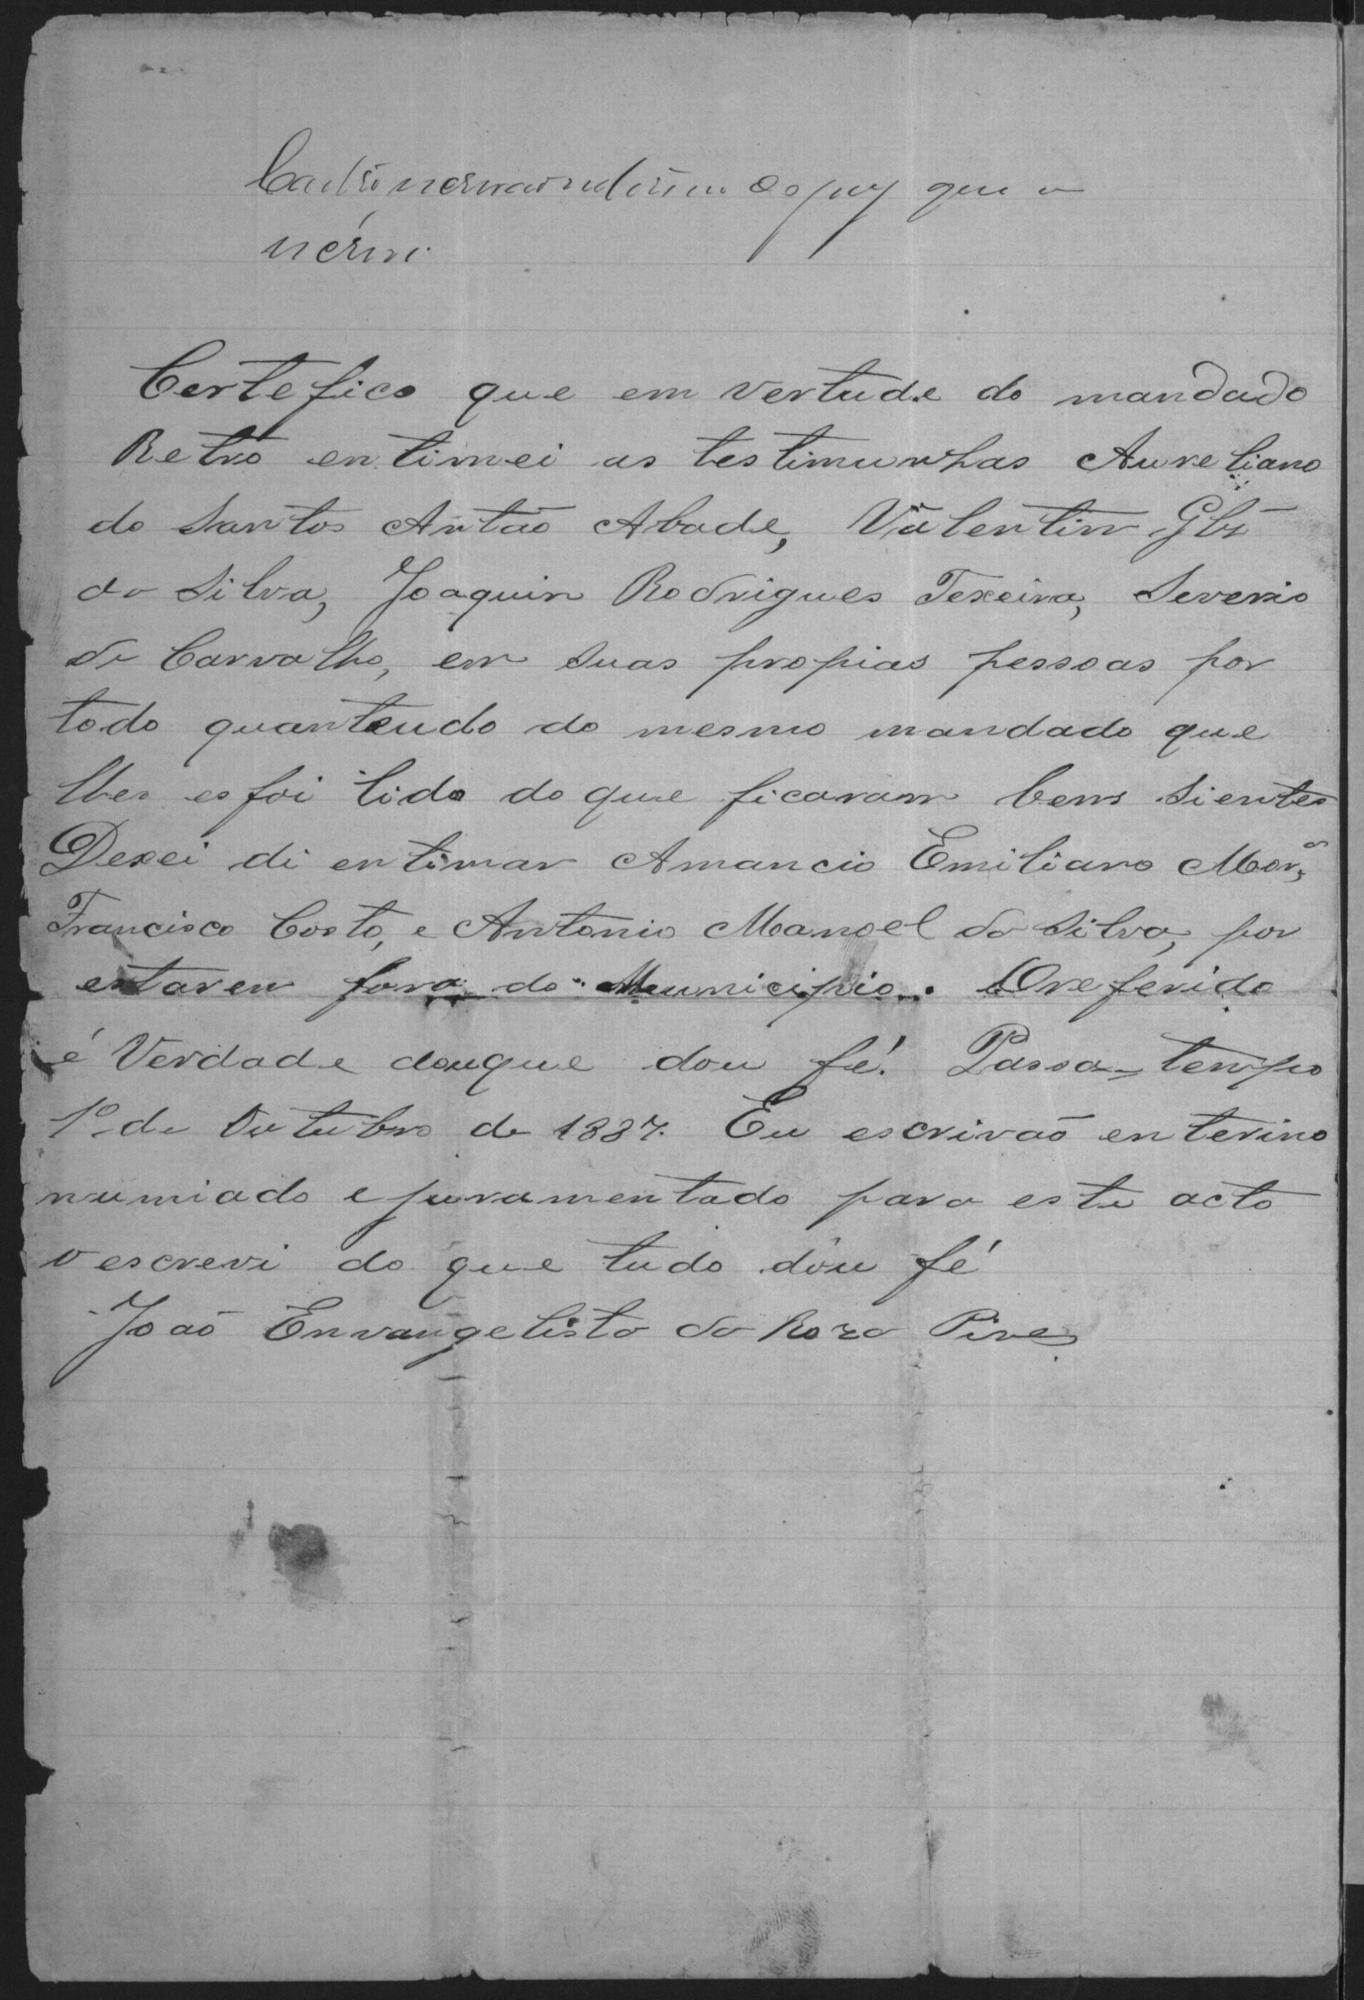 que o
Certefico que em vertude do mandado
Retro entimei as testimunhas Aureliano
do Santos Antão Abade, Valentin Glz
da Silva, Joaquin Rodrigues Texeira, Severio
de Carvalho, em suas propias pessoas por
todo quanteudo do mesmo mandado que
lhes es foi lido do que ficaram bem sientes
Dexei di entimar Amancio Emiliano Mor,ª
Francisco Costa, e Antonio Manoel da Silva, por
estaren fora do Municipio. Oreferido
é Verdade douque dou fé. Passa-tempo
1º de Outubro de 1887. Eu escrivão enterino
numiado e juramentado para este acto
o escrevi do que tudo dou fé
João Envangelista da Roza Pires